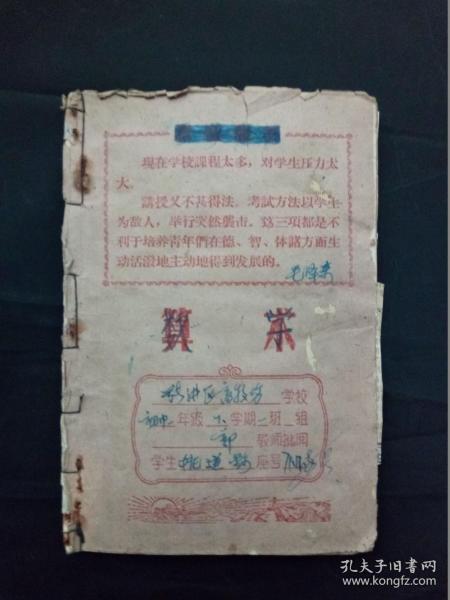 现在学校課程太多，对学生压力太
大。
講授又不甚得法。考試方法以学生
为敌人，举行突然襲击。这三項都是不
利于培养青年們在德、智、体諸方面生
动活潑地主动地得到发展的。
毛泽东
算 术
学校
初中二年級 学期二班 組
教师批閱
学生 姚道 座号
孔夫子旧书网
www.kongfz.com